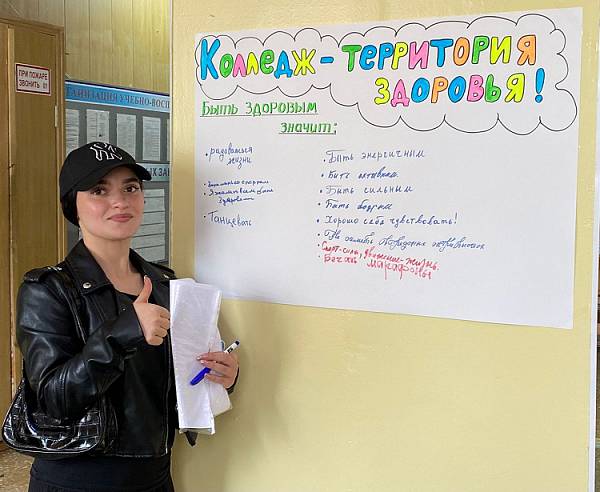 ПРИ ПОЖАРЕ
ЗВОНИТЬ 01
КОЛЛЕДЖ – ТЕРРИТОРИЯ
ЗДОРОВЬЯ!
БЫТЬ ЗДОРОВЫМ
ЗНАЧИТ:
• радоваться
жизни
• Танцевать
• Быть энергичным
• Быть активным
• Быть сильным
• Быть бодрым
• Хорошо себя чувствовать!
• Спорт-сила, движение-жизнь.
• Бегать марафоны